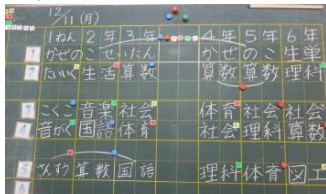 12/11(月)
1ねん 2年 3年 4年 5年 6年
1 かぜのこせいたん かぜのこ 生単
たいく 生活 算数 算数 算数 理科
こくご 音楽 社会 体育 社会 社会
4 音がく 国語 体育 社会 理科 算数
5 さんすう 算数 国語 理科 体育 図工